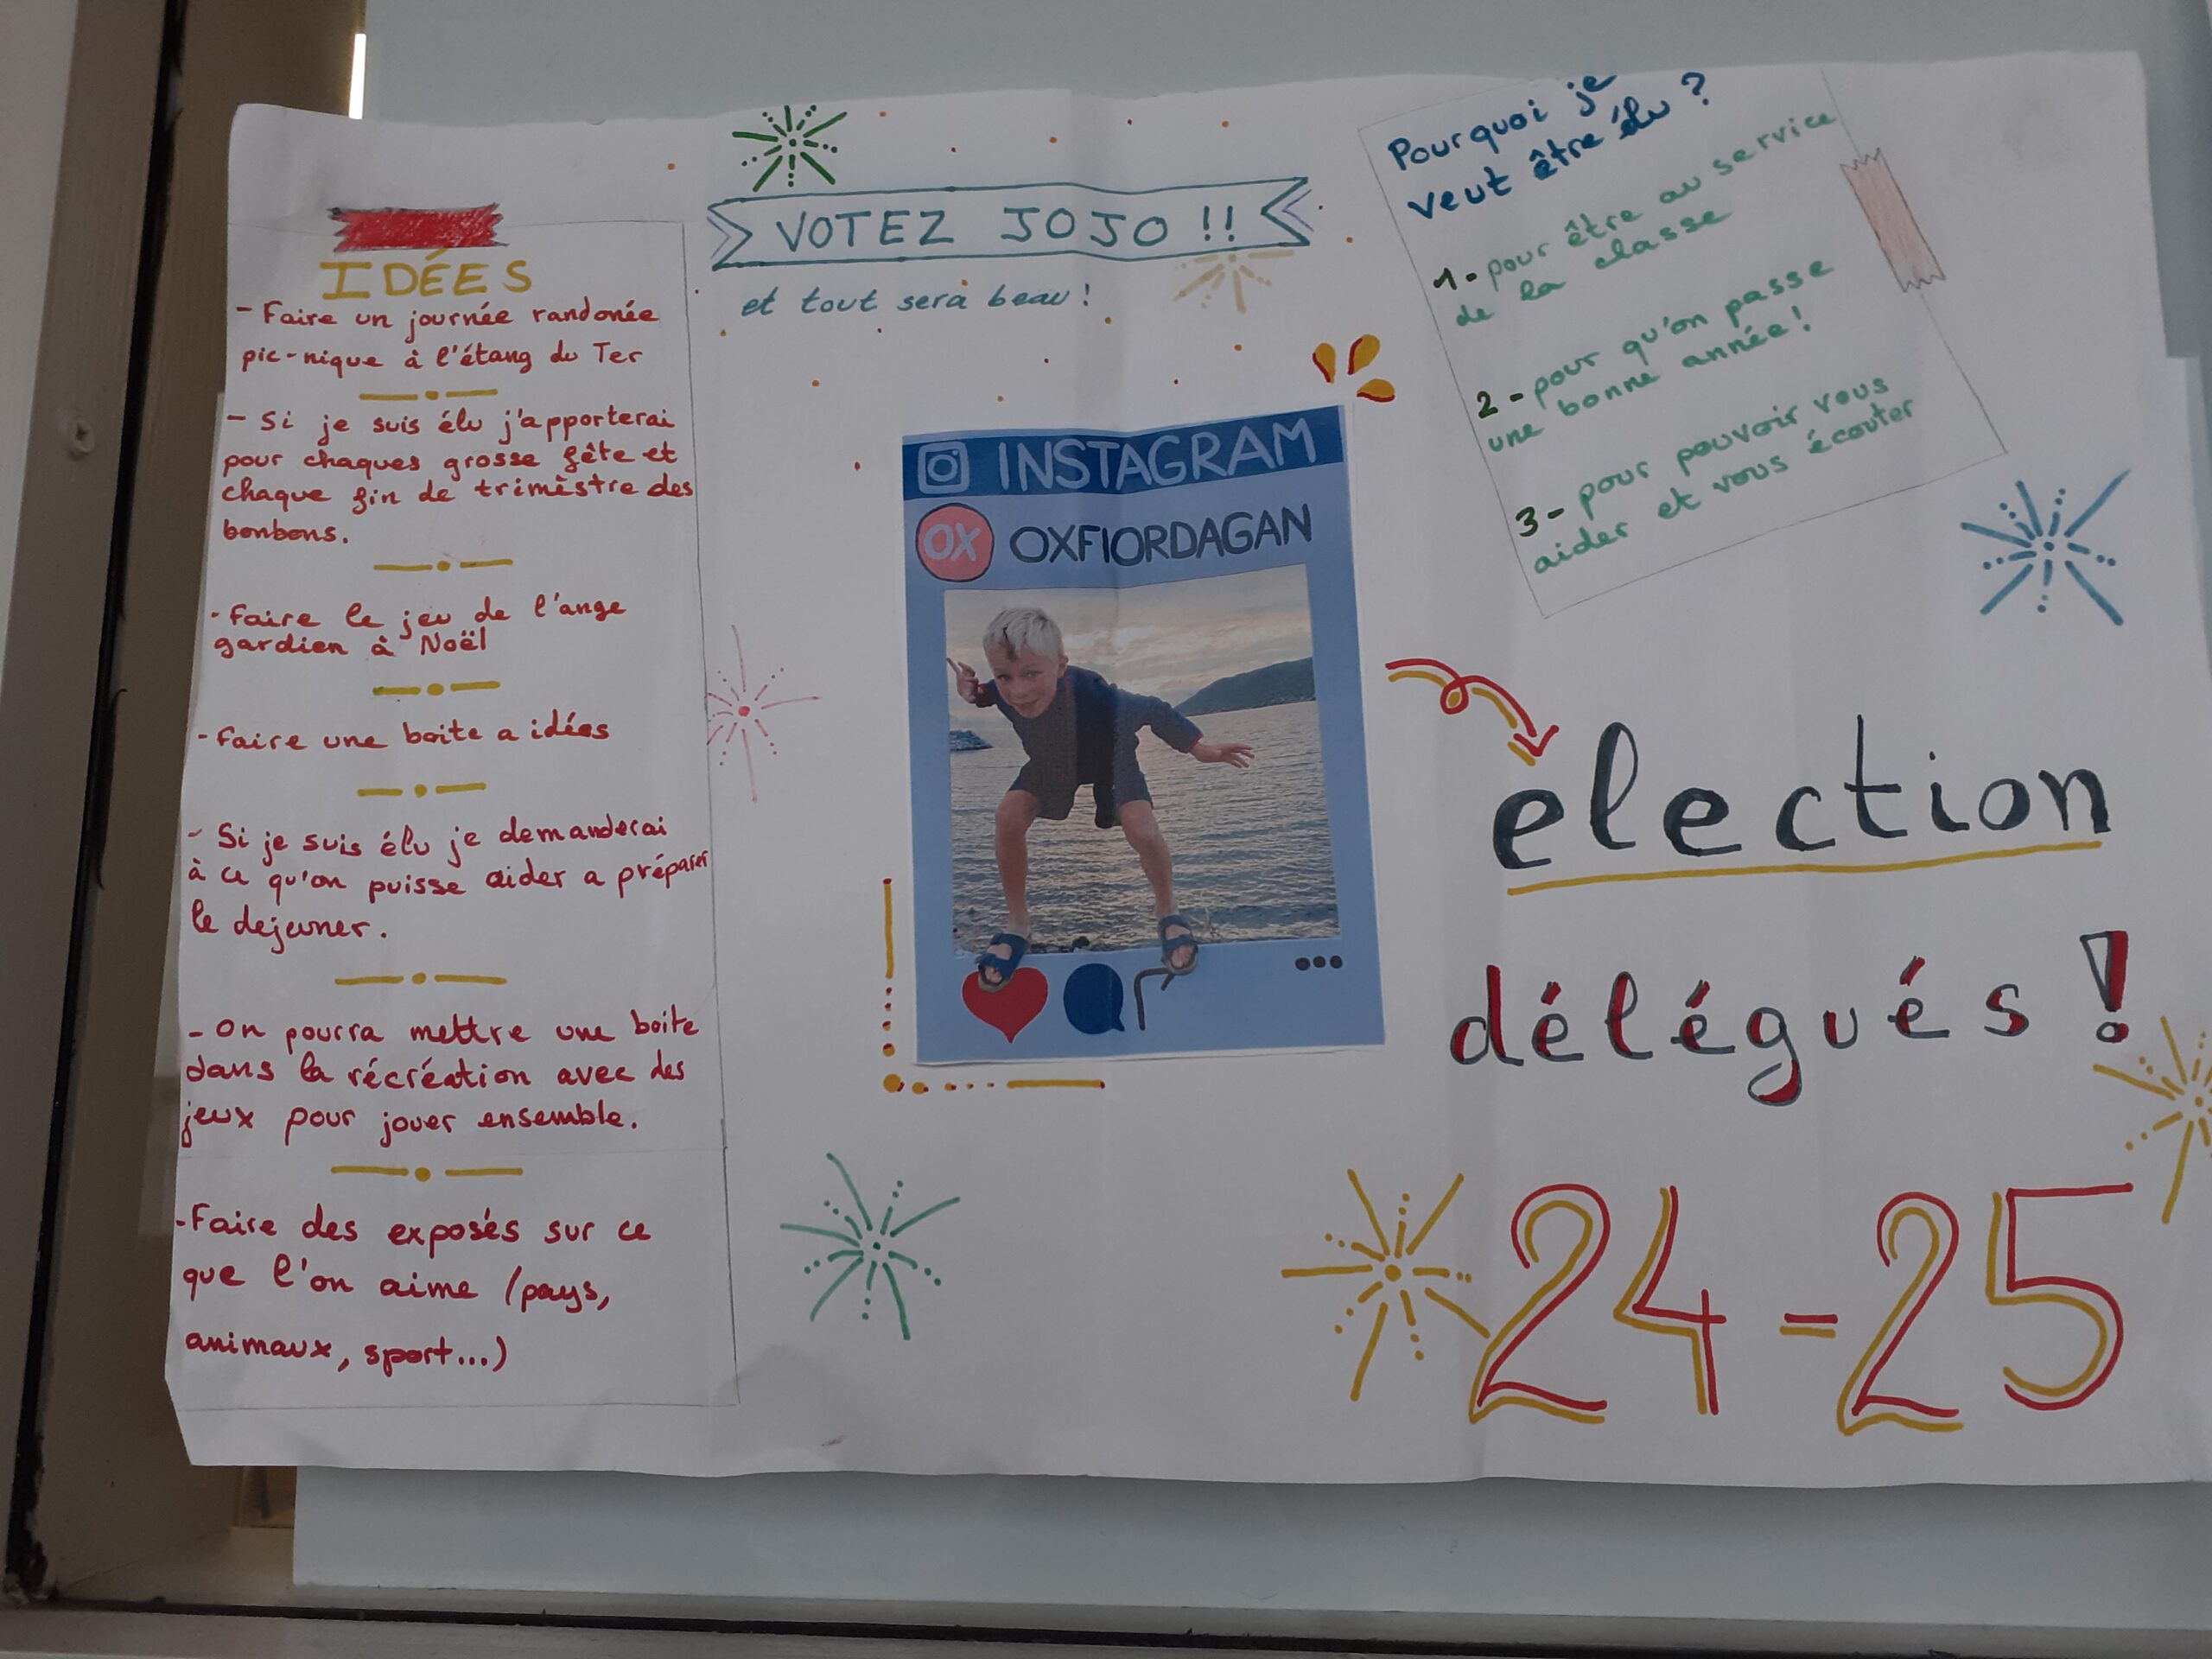 IDÉES
- Faire un journée randonée
pic-nique à l'étang du Ter
- Si je suis élu j'apporterai
pour chaques grosse fête et
chaque fin de trimèstre des
bonbons.
- Faire le jeu de l'ange
gardien à Noël
- Faire une boite a idées
- Si je suis élu je demanderai
à ce qu'on puisse aider a préparer
le dejeuner.
- On pourra mettre une boite
dans la récréation avec des
jeux pour jouer ensemble.
- Faire des exposés sur ce
que l'on aime (pays,
animaux, sport...)
VOTEZ JOJO !!
et tout sera beau !
INSTAGRAM
OX OXFIORDAGAN
Pourquoi je
veut être élu ?
1- pour être au service
de la classe
2- pour qu'on passe
une bonne année !
3- pour pouvoir vous
aider et vous écouter
election
délégués !
24-25